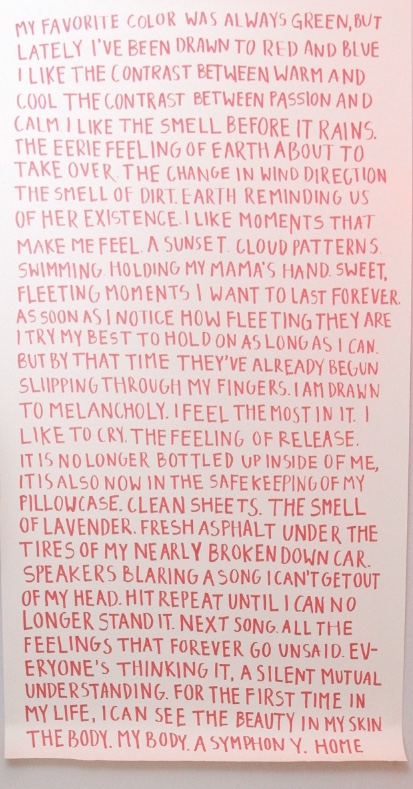 MY FAVORITE COLOR WAS ALWAYS GREEN, BUT
LATELY I'VE BEEN DRAWN TO RED AND BLUE
I LIKE THE CONTRAST BETWEEN WARM AND
COOL THE CONTRAST BETWEEN PASSION AND
CALM. I LIKE THE SMELL BEFORE IT RAINS.
THE EERIE FEELING OF EARTH ABOUT TO
TAKE OVER. THE CHANGE IN WIND DIRECTION
THE SMELL OF DIRT. EARTH REMINDING US
OF HER EXISTENCE. I LIKE MOMENTS THAT
MAKE ME FEEL. A SUNSET. CLOUD PATTERNS.
SWIMMING HOLDING MY MAMA'S HAND. SWEET,
FLEETING MOMENTS I WANT TO LAST FOREVER.
AS SOON AS I NOTICE HOW FLEETING THEY ARE
I TRY MY BEST TO HOLD ON AS LONG AS I CAN.
BUT BY THAT TIME THEY'VE ALREADY BEGUN
SLIIPPING THROUGH MY FINGERS. I AM DRAWN
TO MELANCHOLY. I FEEL THE MOST IN IT. I
LIKE TO CRY. THE FEELING OF RELEASE.
IT IS NO LONGER BOTTLED UP INSIDE OF ME,
IT IS ALSO NOW IN THE SAFEKEEPING OF MY
PILLOWCASE. CLEAN SHEETS. THE SMELL
OF LAVENDER. FRESH ASPHALT UNDER THE
TIRES OF MY NEARLY BROKEN DOWN CAR.
SPEAKERS BLARING A SONG I CAN'T GET OUT
OF MY HEAD. HIT REPEAT UNTIL I CAN NO
LONGER STAND IT. NEXT SONG. ALL THE
FEELINGS THAT FOREVER GO UNSAID. EV-
ERYONE'S THINKING IT, A SILENT MUTUAL
UNDERSTANDING. FOR THE FIRST TIME IN
MY LIFE, I CAN SEE THE BEAUTY IN MY SKIN
THE BODY. MY BODY. A SYMPHONY. HOME